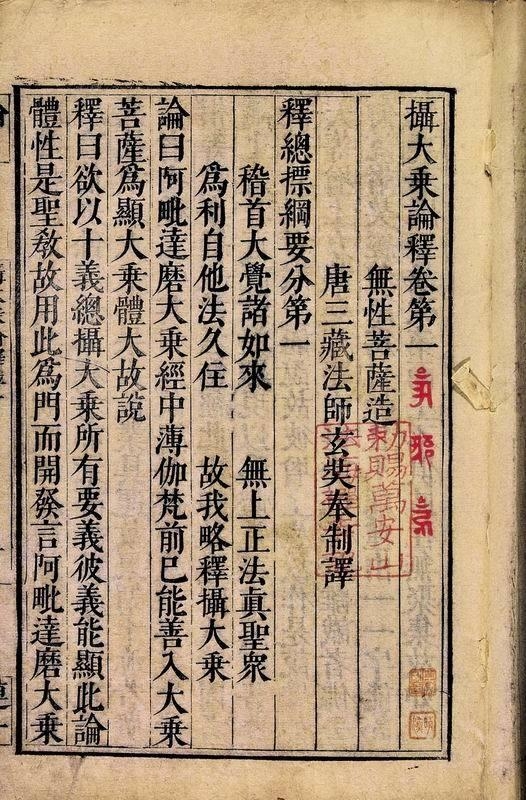 攝大乘論釋卷第一
無性菩薩造
唐三藏法師玄奘奉制譯
釋總摽綱要分第一
稽首大覺諸如來 無上正法真聖衆
爲利自他法久住 故我略釋攝大乘
論曰阿毗達磨大乘經中薄伽梵前已能善入大乘
菩薩爲顯大乘體大故說
釋曰欲以十義總攝大乘所有要義彼義能顯此論
體性是聖敎故用此爲門而開發言阿毗達磨大乘